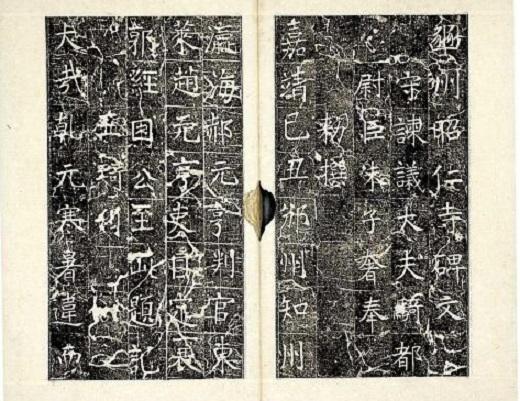 豳州昭仁寺碑文
守諫議大夫騎都
尉臣朱子奢奉
勑撰
嘉靖己丑邠州知州
瀛海郝元亨判官東
萊趙元亨吏目襄
郭經因公至此題記
夫哉乾元寒暑違而